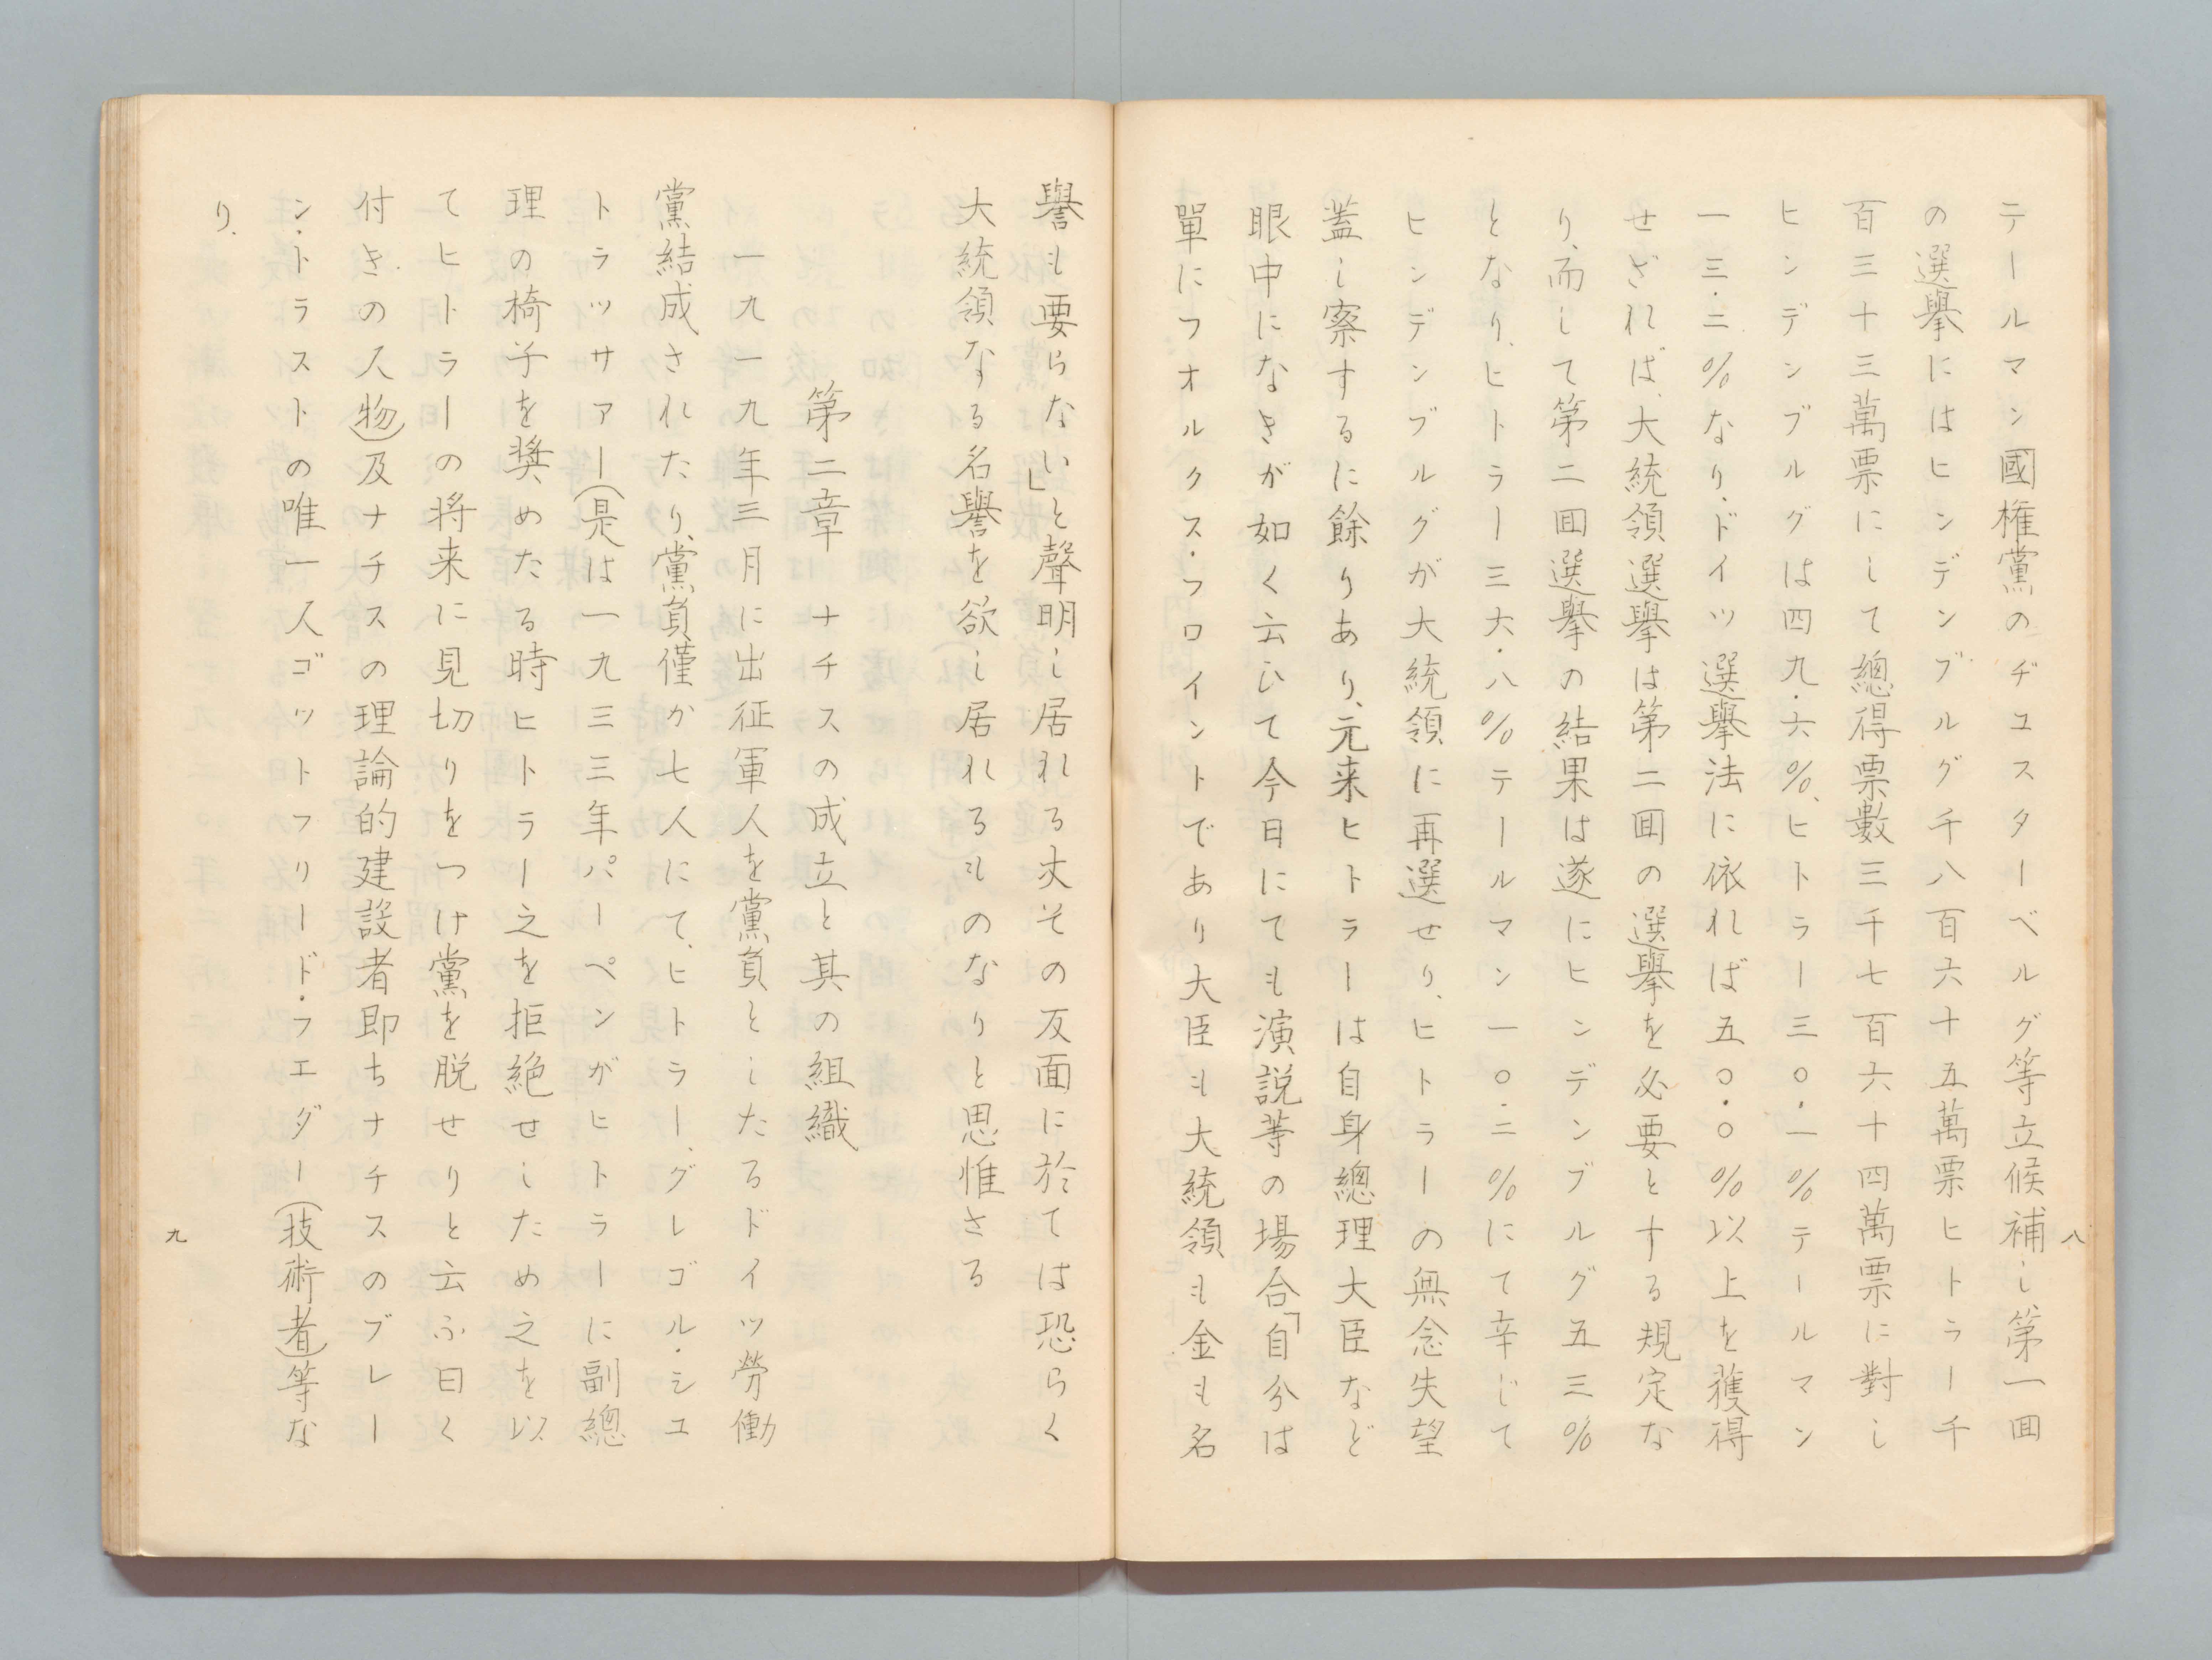 八
テールマン國権黨のヂユスターベルグ等立候補し、第一囬
の選擧にはヒンデンブルグ千八百六十五萬票ヒトラー千
百三十三萬票にして總得票數三千七百六十四萬票に對し
ヒンデンブルグは四九・六%、ヒトラー三〇・一%テールマン
一三・二%なり、ドイツ選擧法に依れば五〇・〇%以上を獲得
せざれば、大統領選擧は第二囬の選擧を必要とする規定な
り、而して第二囬選擧の結果は遂にヒンデンブルグ五三%
となり、ヒトラー三六・八%テールマン一〇・二%にて辛じて
ヒンデンブルグが大統領に再選せり、ヒトラーの無念失望
蓋し察するに餘りあり、元来ヒトラーは自身總理大臣など
眼中になきが如く云ひて今日にても演説等の場合「自分は
單にフオルクス・フロイントであり大臣も大統領も金も名
譽も要らない」と聲明し居れる丈その反面に於ては恐らく
大統領なる名譽を欲し居れるものなりと思惟さる
第二章　ナチスの成立と其の組織
一九一九年三月に出征軍人を黨員としたるドイツ勞働
黨結成されたり、黨員僅か七人にて、ヒトラー、グレゴル・シユ
トラツサアー(是は一九三三年パーペンがヒトラーに副總
理の椅子を奨めたる時ヒトラー之を拒絶せしため之を以
てヒトラーの将来に見切りをつけ黨を脱せりと云ふ曰く
付きの人物)及ナチスの理論的建設者即ちナチスのブレー
ン・トラストの唯一人ゴツトフリード・フエダー(技術者)等な
り.
九